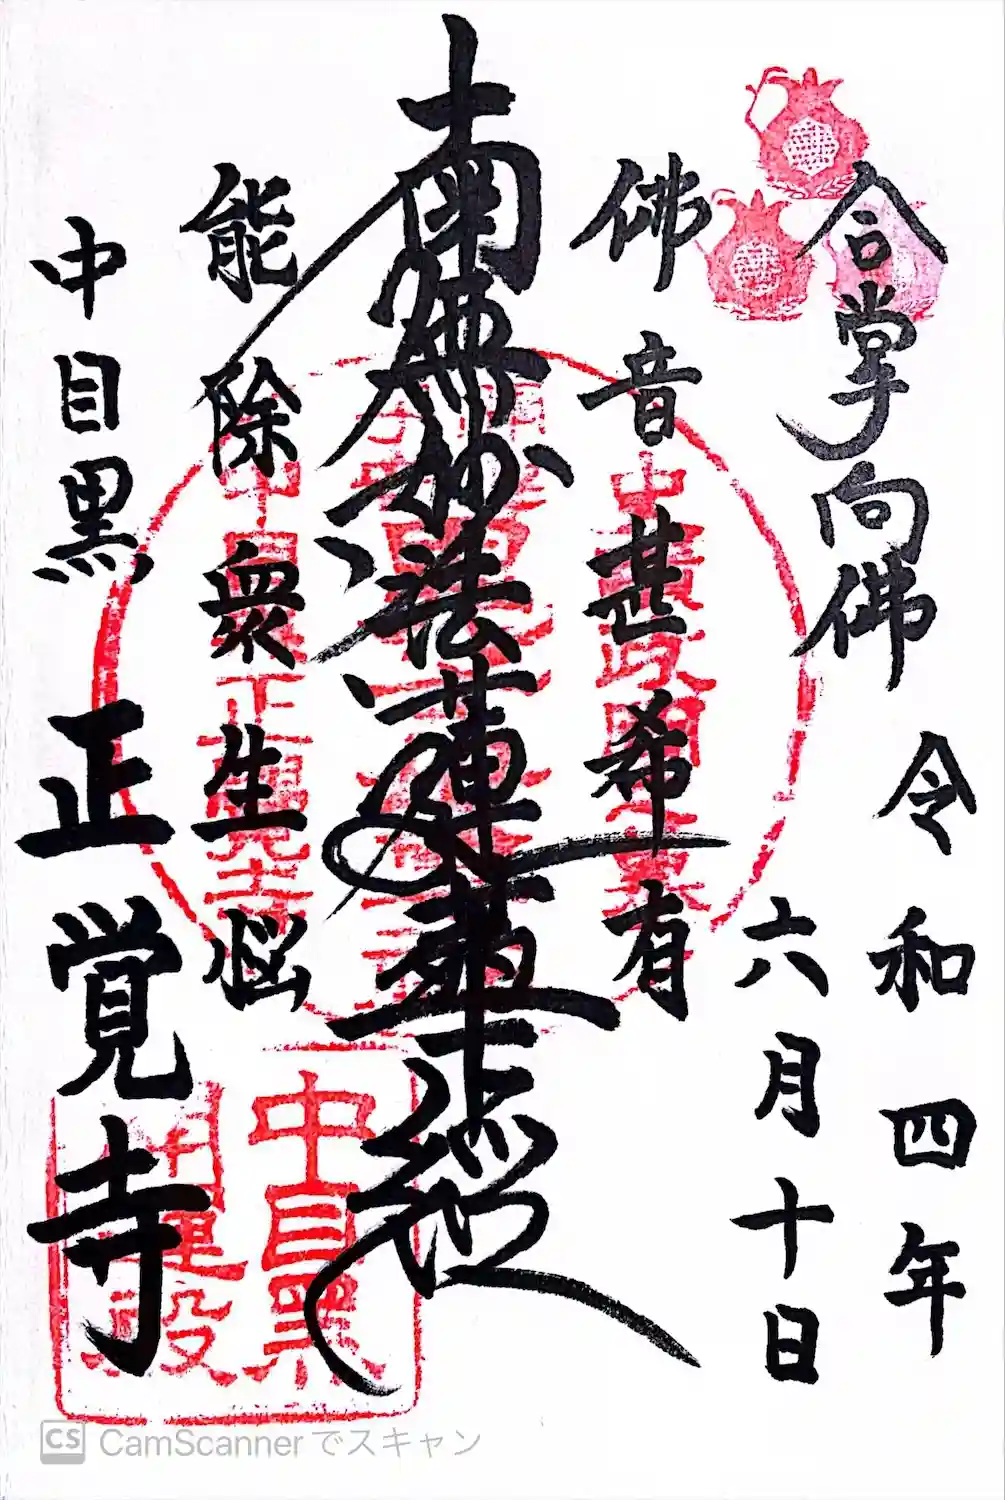 合掌向佛
令和四年
六月十日
佛音甚希有
南無妙法蓮華経
能除衆生悩
中目黒
正覚寺
中目黒
CS CamScannerでスキャン